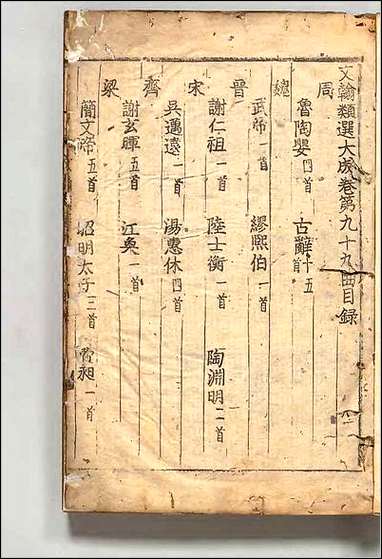 文翰類選大成卷第九十九曲目錄
周
魯陶嬰四首 古辭十五首
魏
武帝一首 繆熙伯一首
晉
謝仁祖一首 陸士衡一首 陶淵明二首
宋
吳邁遠一首 湯惠休四首
齊
謝玄暉五首 江奐一首
梁
簡文帝五首 昭明太子三首 費昶一首